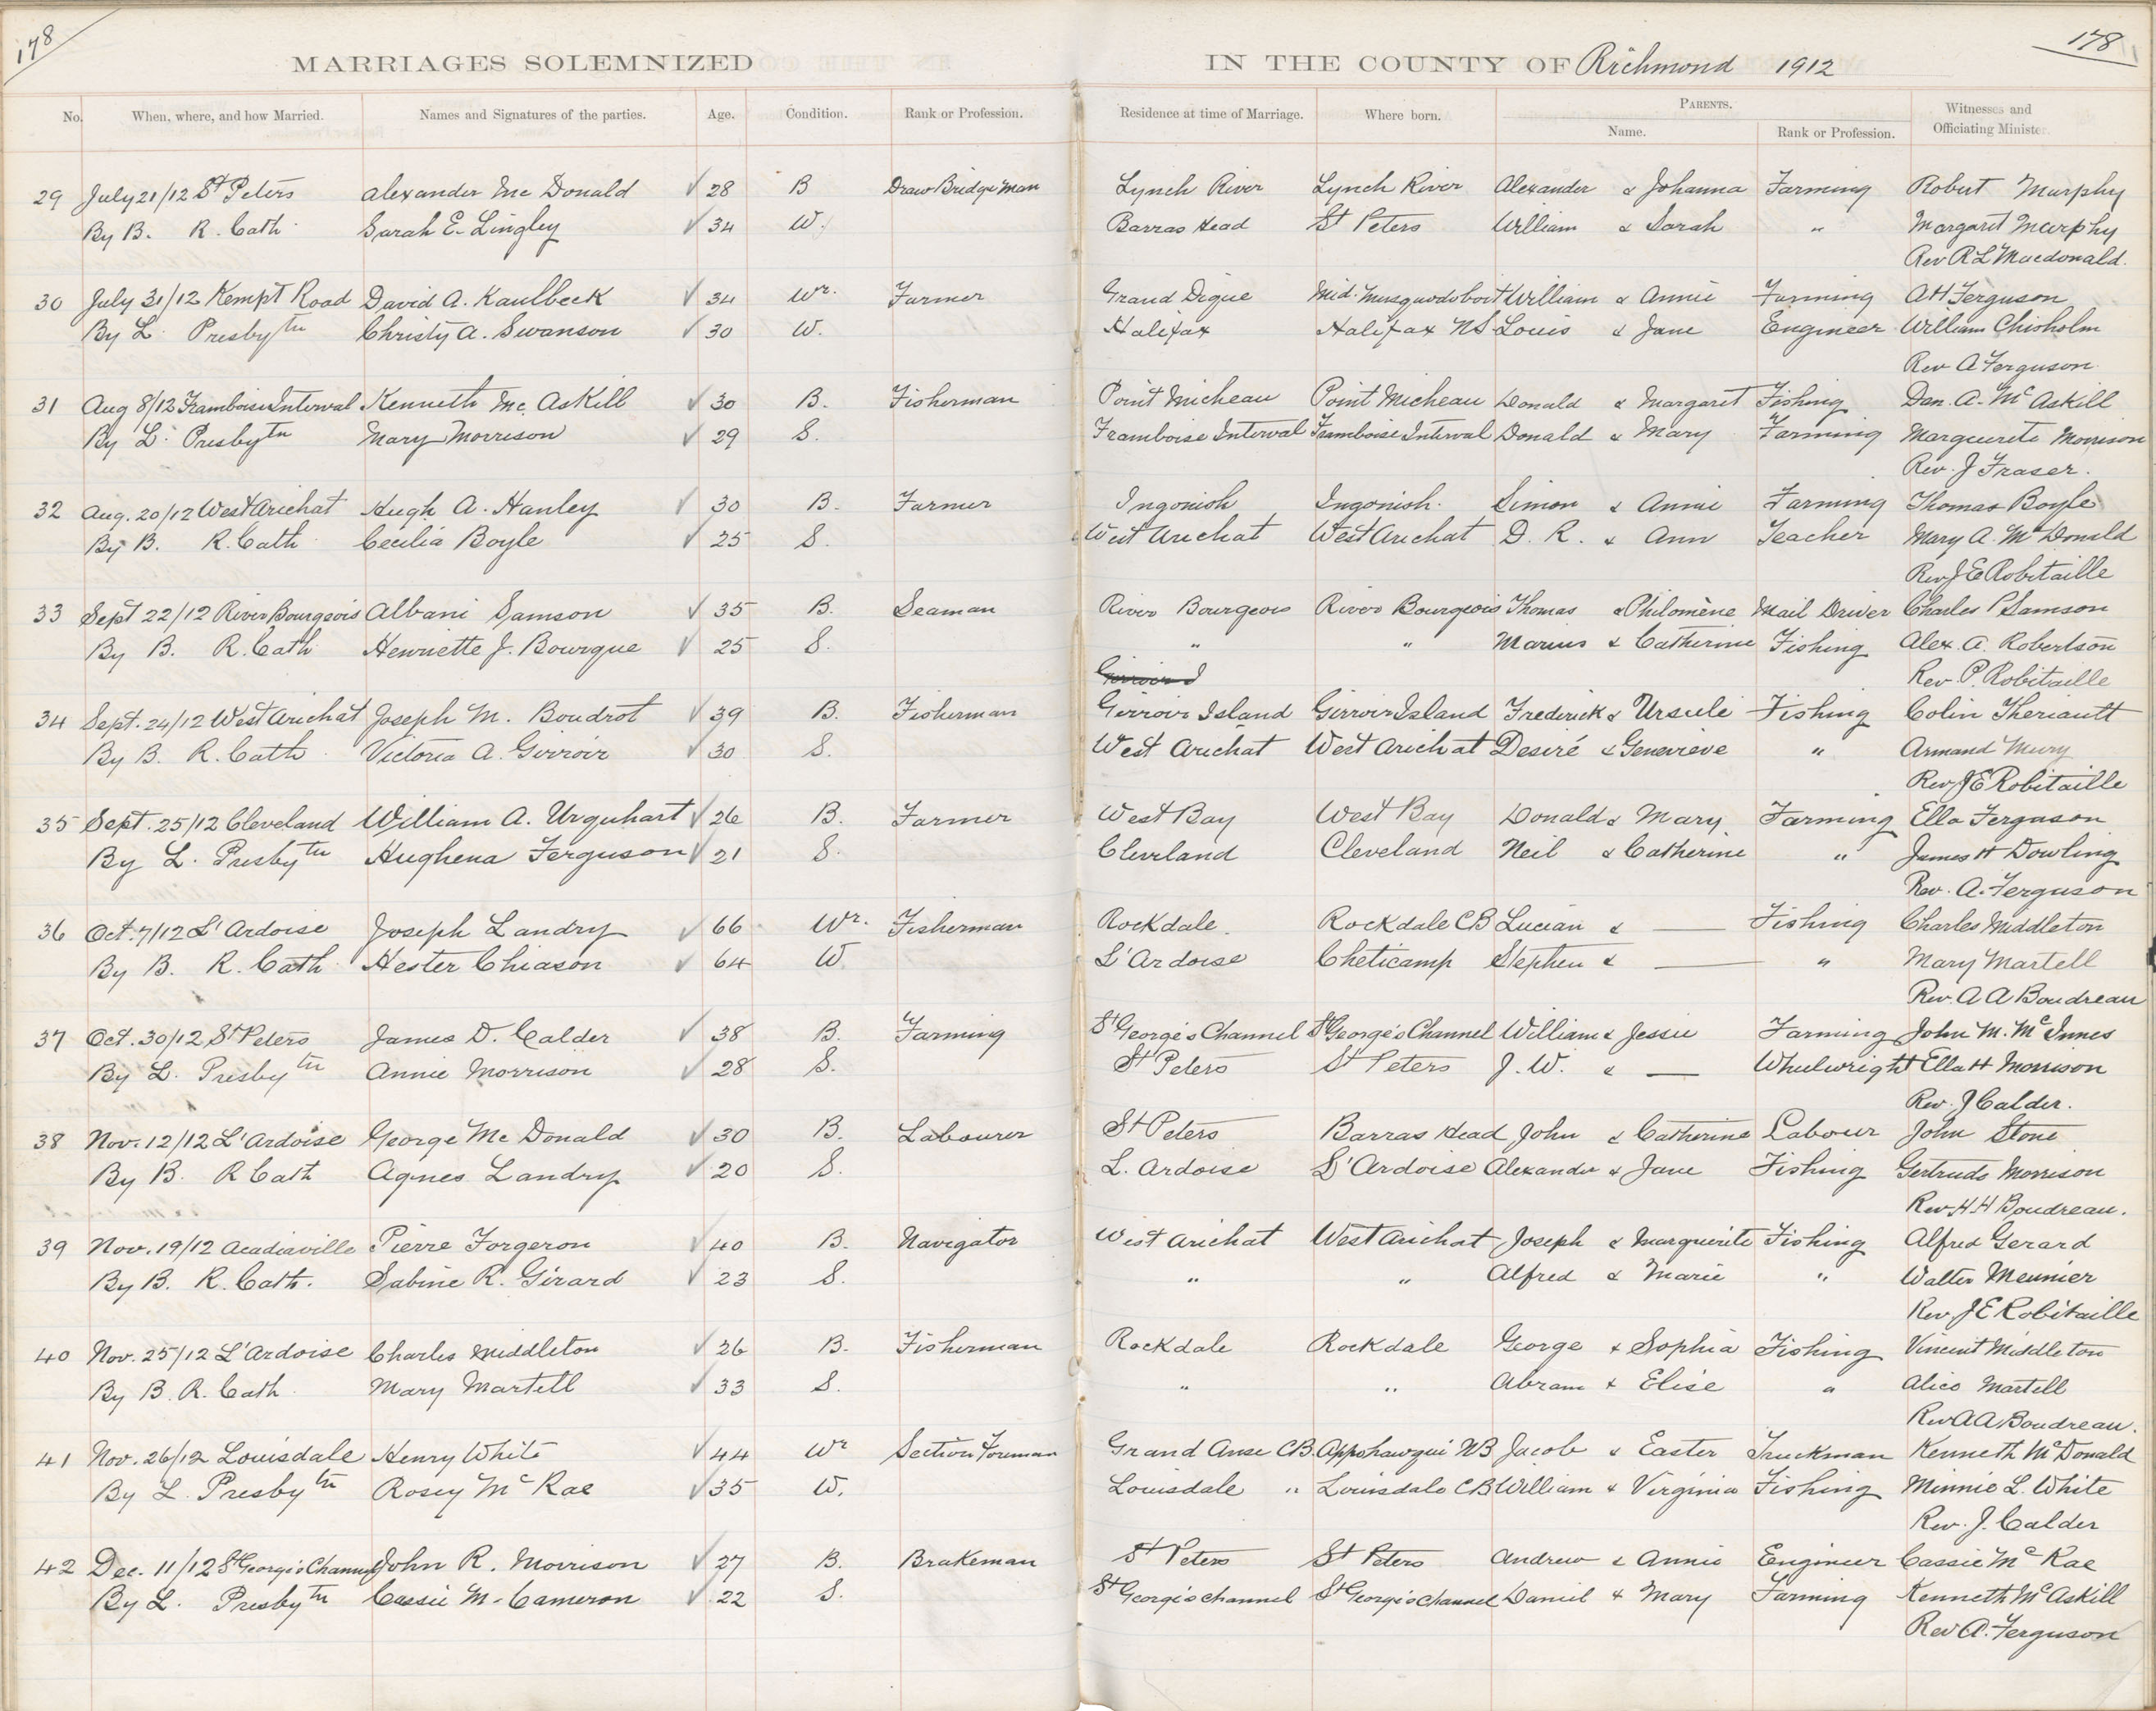 178
178
MARRIAGES SOLEMNIZED IN THE COUNTY OF Richmond 1912
No. When, where, and how Married. Names and Signatures of the parties. Age. Condition. Rank or Profession. Residence at time of Marriage. Where born. PARENTS. Name. Rank or Profession. Witnesses and Officiating Minister.
29 July 21/12 St Peters Alexander Mc Donald ✓ 28 B Draw Bridge Man Lynch River Lynch River Alexander & Johanna Farming Robert Murphy
By B. R. Cath. Sarah E. Lingley ✓ 34 W. Barras Head St Peters William & Sarah " Margaret Murphy
Rev R L Macdonald.
30 July 31/12 Kempt Road David A. Kaulbeck ✓ 34 Wr. Farmer Grand Digue Mid. Musquodoboit William & Annie Farming A H Ferguson
By L. Presbytn Christy A. Swanson ✓ 30 W. Halifax Halifax NS Louis & Jane Engineer William Chisholm
Rev A Ferguson
31 Aug 8/12 Framboise Interval Kenneth Mc Askill ✓ 30 B. Fisherman Point Micheau Point Micheau Donald & Margaret Fishing Dan. A. Mc Askill
By L. Presbytn Mary Morrison ✓ 29 S. Framboise Interval Framboise Interval Donald & Mary Farming Marguerite Morrison
Rev. J Fraser.
32 Aug. 20/12 West Arichat Hugh A. Hanley ✓ 30 B. Farmer Ingonish Ingonish. Simon & Annie Farming Thomas Boyle
By B. R. Cath Cecilia Boyle ✓ 25 S. West Arichat West Arichat D. R. & Ann Teacher Mary A. Mc Donald
Rev J E Robitaille
33 Sept 22/12 River Bourgeois Albani Samson ✓ 35 B. Seaman River Bourgeois River Bourgeois Thomas & Philomène Mail Driver Charles P Samson
By B. R. Cath Henriette J. Bourque ✓ 25 S. " " Marius & Catherine Fishing Alex. A. Robertson
Girroir I Rev. P. Robitaille
34 Sept. 24/12 West Arichat Joseph M. Boudrot ✓ 39 B. Fisherman Girroir Island Girroir Island Frederick & Ursule Fishing Colin Theriault
By B. R. Cath Victoria A. Girroir ✓ 30 S. West Arichat West Arichat Desiré & Genevieve " Armand Mury
Rev J E Robitaille
35 Sept. 25/12 Cleveland William A. Urquhart ✓ 26 B. Farmer West Bay West Bay Donald & Mary Farming Ella Ferguson
By L. Presbytn Hughena Ferguson ✓ 21 S. Cleveland Cleveland Neil & Catherine " James H Dowling
Rev. A. Ferguson
36 Oct. 7/12 L'Ardoise Joseph Landry ✓ 66 Wr. Fisherman Rockdale Rockdale CB Lucian & — Fishing Charles Middleton
By B. R. Cath Hester Chiason ✓ 64 W L'Ardoise Cheticamp Stephen & — " Mary Martell
Rev. A A Boudreau
37 Oct. 30/12 St Peters James D. Calder ✓ 38 B. Farming St George's Channel St George's Channel William & Jessie Farming John M. Mc Innes
By L. Presbytn Annie Morrison ✓ 28 S. St Peters St Peters J. W. & — Wheelwright Ella H Morrison
Rev. J Calder.
38 Nov. 12/12 L'Ardoise George Mc Donald ✓ 30 B. Labourer St Peters Barras Head John & Catherine Labour John Stone
By B. R Cath Agnes Landry ✓ 20 S. L. Ardoise L'Ardoise Alexander & Jane Fishing Gertrude Morrison
Rev. H H Boudreau.
39 Nov. 19/12 Acadiaville Pierre Forgeron ✓ 40 B. Navigator West Arichat West Arichat Joseph & Marguerite Fishing Alfred Gerard
By B. R. Cath. Sabine R. Girard ✓ 23 S. " " Alfred & Marie " Walter Meunier
Rev J E Robitaille
40 Nov. 25/12 L'Ardoise Charles Middleton ✓ 26 B. Fisherman Rockdale Rockdale George & Sophia Fishing Vincent Middleton
By B. R. Cath Mary Martell ✓ 33 S. " " Abram & Elise " Alice Martell
Rev A A Boudreau.
41 Nov. 26/12 Louisdale Henry White ✓ 44 Wr Section Foreman Grand Anse CB. Appohawqui NB Jacob & Easter Truckman Kenneth Mc Donald
By L. Presbytn Rosey Mc Rae ✓ 35 W. Louisdale " Louisdale CB William & Virginia Fishing Minnie L. White
Rev. J. Calder
42 Dec. 11/12 St George's Channel John R. Morrison ✓ 27 B. Brakeman St Peters St Peters Andrew & Annie Engineer Cassie Mc Rae
By L. Presbytn Cassie M. Cameron ✓ 22 S. St George's Channel St George's Channel Daniel & Mary Farming Kenneth Mc Askill
Rev A. Ferguson